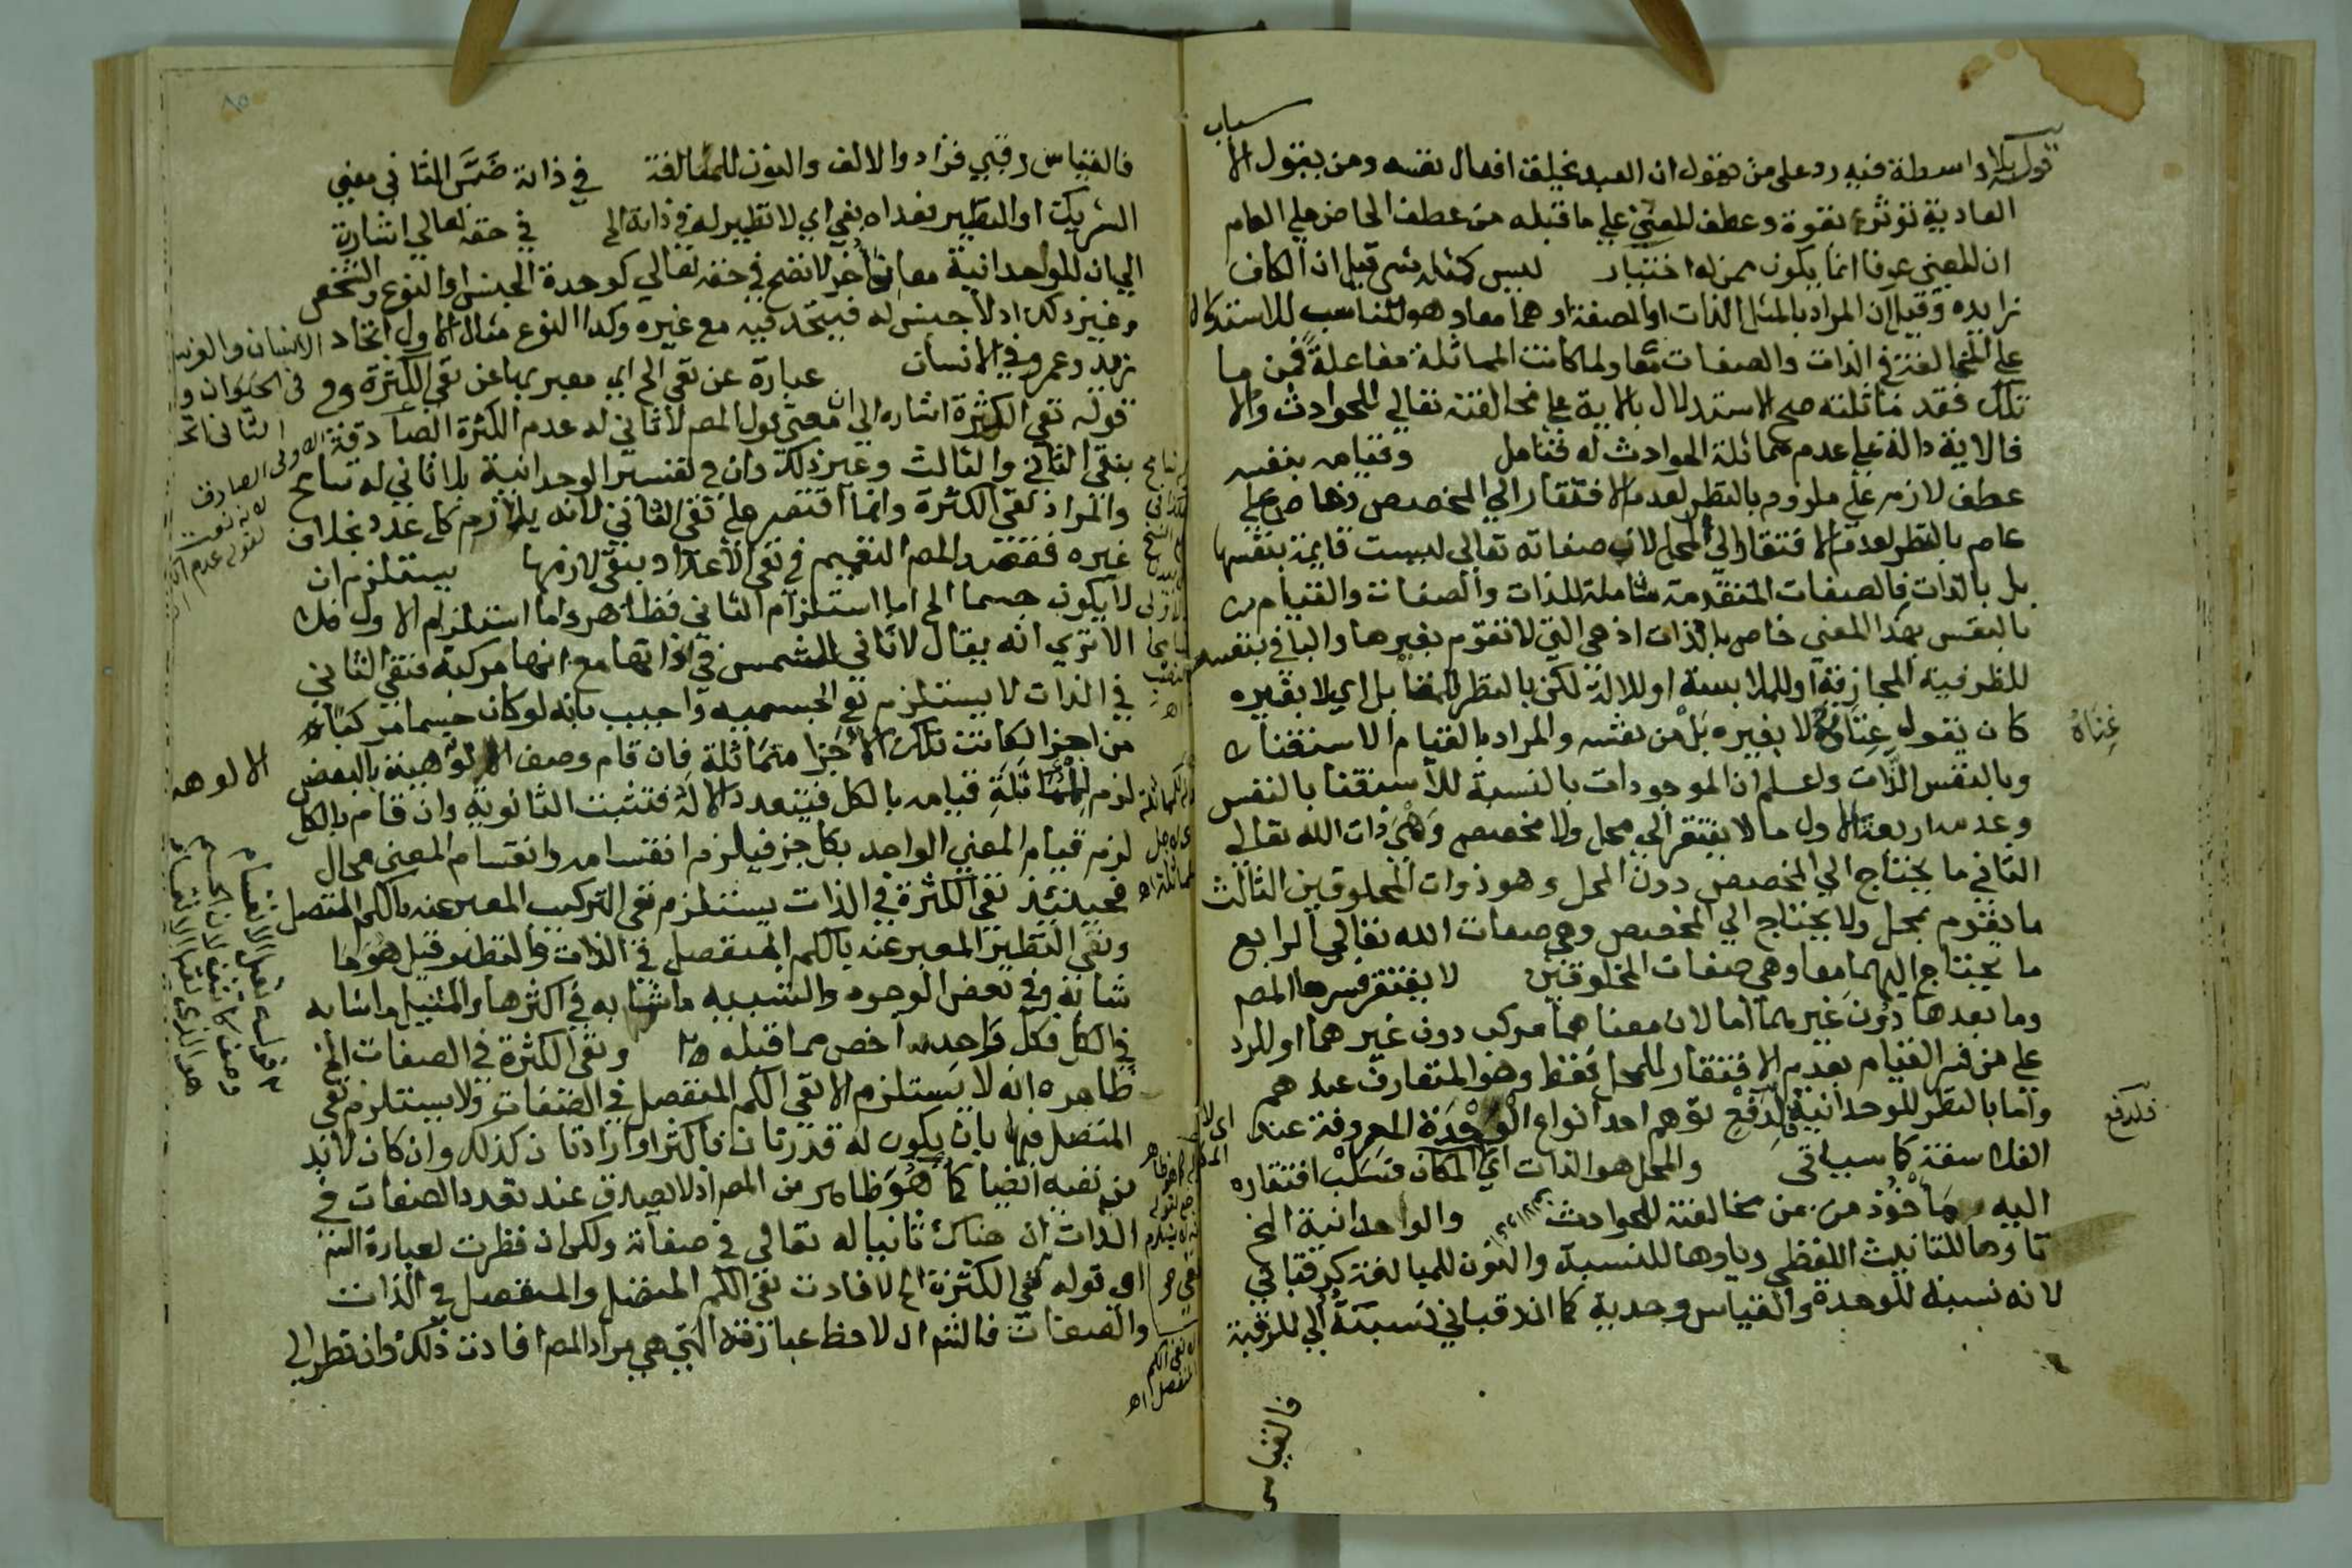 سباب
قوله بلا واسطة فيه رد على من يقول ان العبد يخلق افعال نفسه ومن يقول الا
العادية تؤثر بقوة وعطف المعين على ما قبله من عطف الخاص على العام
ان المعين عرفا انما يكون ممن له اختيار ليس كمثله شي قيل ان الكاف
زايده وقيل ان المراد بالمثل الذات او الصفة او هما معا وهو المناسب للاستدلال
على المخالفة في الذات والصفات معا ولما كانت المماثلة مفاعلة فمن ما
ثلك فقد ماثلته صح الاستدلال بالاية على مخالفته تعالى للحوادث والا
فالاية دالة على عدم مماثلة الحوادث له فتامل وقيامه بنفسه
عطف لازم على ملزوم بالنظر لعدم الافتقار الي المخصص وخاص على
عام بالنظر لعدم الافتقار الي المحل لان صفاته تعالى ليست قايمة بنفسها
بل بالذات فالصفات المتقدمة شاملة للذات والصفات والقيام
بالنفس بهذا المعنى خاص بالذات اذ هي التي لا تقوم بغيرها والبا في بنفسه
للظرفية المجازية او للملابسة او للالة لكن بالنظر للمقابل اي لا بغيره
كان يقول غناه لا بغيره بل من نفسه والمراد بالقيام الاستغنا
وبالنفس الذات واعلم ان الموجودات بالنسبة للاستغنا بالنفس
وعدمه اربعة الاول ما لا يفتقر الي محل ولا مخصص وهي ذات الله تعالى
الثاني ما يحتاج الي المخصص دون المحل وهو ذوات المخلوقين الثالث
ما يقوم بمحل ولا يحتاج الي المخصص وهي صفات الله تعالى الرابع
ما يحتاج اليهما معا وهي صفات المخلوقين لا يفتقر فسرها المصم
وما بعدها دون غيرهما اما لان معناهما مركب دون غيرهما او للرد
على من فسر القيام بعدم الافتقار للمحل فقط وهو المتعارف عندهم
واما بالنظر للوحدانية فلدفع توهم احد انواع الوحدة المعروفة عند
الفلاسفة كما سياتي والمحل هو الذات اي المكان فسلب افتقاره
اليه ماخوذ من مخالفته للحوادث والوحدانية الخ
تاوها للتانيث اللفظي وياوها للنسبة والنون للمبالغة كرقباني
لانه نسبة للوحدة والقياس وحدية كما ان رقباني نسبة الي للرقبة
غناه
فلدفع
فالقياس
فالقياس رقبي فزادوا الالف والنون للمبالغة في ذاته ضمن الثاني معنى
الشريك او النظير فعداه بفي اي لا نظير له في ذاته الخ في حقه تعالي اشارة
الي ان للوحدانية معان اخر لا تصح في حقه تعالي كوحدة الجنس او النوع والشخص
وغير ذلك اذ لا جنس له فيتحد فيه مع غيره وكذا النوع مثال الاول اتحاد الانسان والفرس
زيد وعمرو في الانسان عبارة عن نفي الخ اي معبر بها عن نفي الكثرة و في الحيوان و
قوله نفي الكثرة اشارة الي ان معنى قول المصم لا ثاني له عدم الكثرة الصادقة الثاني اتحا
بنفي الثاني والثالث وغير ذلك وان في تفسير الوحدانية بلا ثاني له تسامح
والمراد نفي الكثرة وانما اقتصر على نفي الثاني لانه يلازم كل عدد بخلاف
غيره فقصد المصم التعميم في نفي الاعداد بنفي لازمها يستلزم ان
لا يكون جسما الخ اما استلزام الثاني فظاهر واما استلزام الاول فلا
الا تري انه يقال لا ثاني للشمس في ذاتها مع انها مركبة فنفي الثاني
في الذات لا يستلزم نفي الجسمية واجيب بانه لو كان جسما مركبا
من اجزا لكانت تلك الاجزا متماثلة فان قام وصف الالوهية بالبعض
لزم للمماثلة قيامه بالكل فيتعدد الاله فتثبت الثانوية وان قام بالكل
لزم قيام المعني الواحد بكل جزء فيلزم انقسامه وانقسام المعني محال
فحينئذ نفي الكثرة في الذات يستلزم نفي التركيب المعبر عنه بالكم المتصل
ونفي النظير المعبر عنه بالكم المنفصل في الذات والنظير قيل هو ما
شابه في بعض الوجوه والشبيه ما شابه في اكثرها والمثيل ما شابه
في الكل فكل واحد اخص مما قبله ونفي الكثرة في الصفات الخ
ظاهره انه لا يستلزم الا نفي الكم المنفصل في الصفات ولا يستلزم نفي
المتصل فيها بان يكون له قدرتان فاكثر او ارادتان كذلك وان كان لابد
من نفيه ايضا كما هو ظاهر من المصم اذ لا يصدق عند تعدد الصفات في
الذات ان هناك ثانيا له تعالي في صفاته ولكن ان نظرت لعبارة الشم
اي قوله نفي الكثرة الخ لافادت نفي الكم المتصل والمنفصل في الذات
والصفات فالشم ان لاحظ عبارته التي هي مراد المصم افادت ذلك وان نظر الي
الالوهه